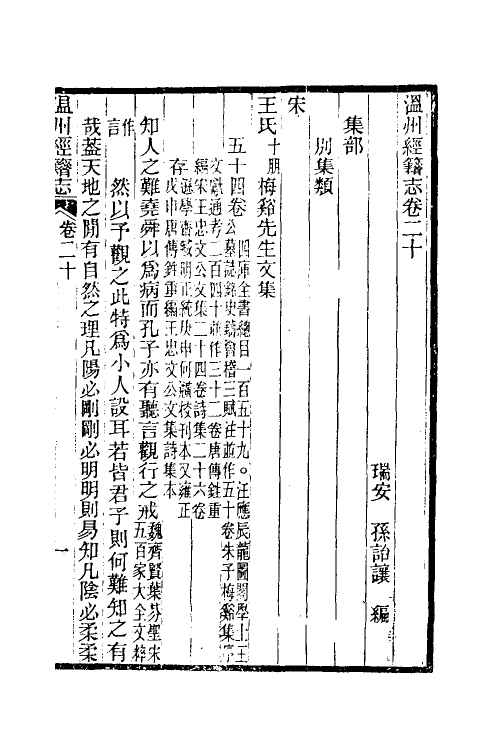 溫州經籍志卷二十
瑞安　孫詒讓　編
集部
別集類
宋
王氏十朋梅谿先生文集
五十四卷四庫全書總目一百五十九。汪應辰龍圖閣學士王
公墓誌銘史鑄會稽三賦注並作五十卷朱子梅谿集序
文獻通考二百四十並作三十二卷唐傳鉎重
編宋王忠文公文集二十四卷詩集二十六卷
存遜學齋臧明正統庚申何瀻校刊本又雍正
戊申唐傳鉎重編王忠文公文集詩集本
知人之難堯舜以爲病而孔子亦有聽言觀行之戒魏齊賢葉棻聖宋
五百家大全文粹
作
言　然以予觀之此特爲小人設耳若皆君子則何難知之有
哉葢天地之閒有自然之理凡陽必剛剛必明明則易知凡陰必柔柔
溫州經籍志　卷二十　一